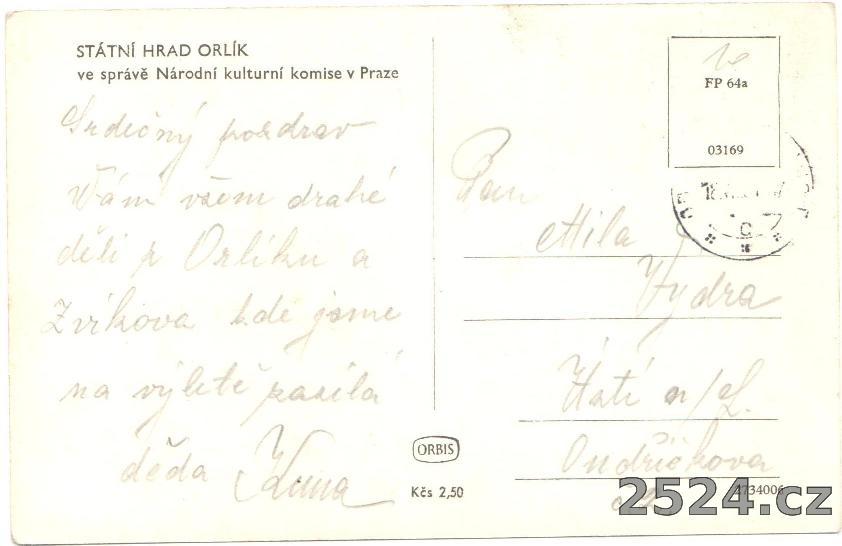 STÁTNÍ HRAD ORLÍK
ve správě Národní kulturní komise v Praze
Srdečný pozdrav
Vám všem drahé
děti z Orlíku a
Zvíkova kde jsme
na výletě zasílá
děda Kuna
FP 64a
03169
Pan
Mila
Vydra
Ústí n/L.
Ondříčkova
ORBIS
Kčs 2,50
2734006
2524.cz